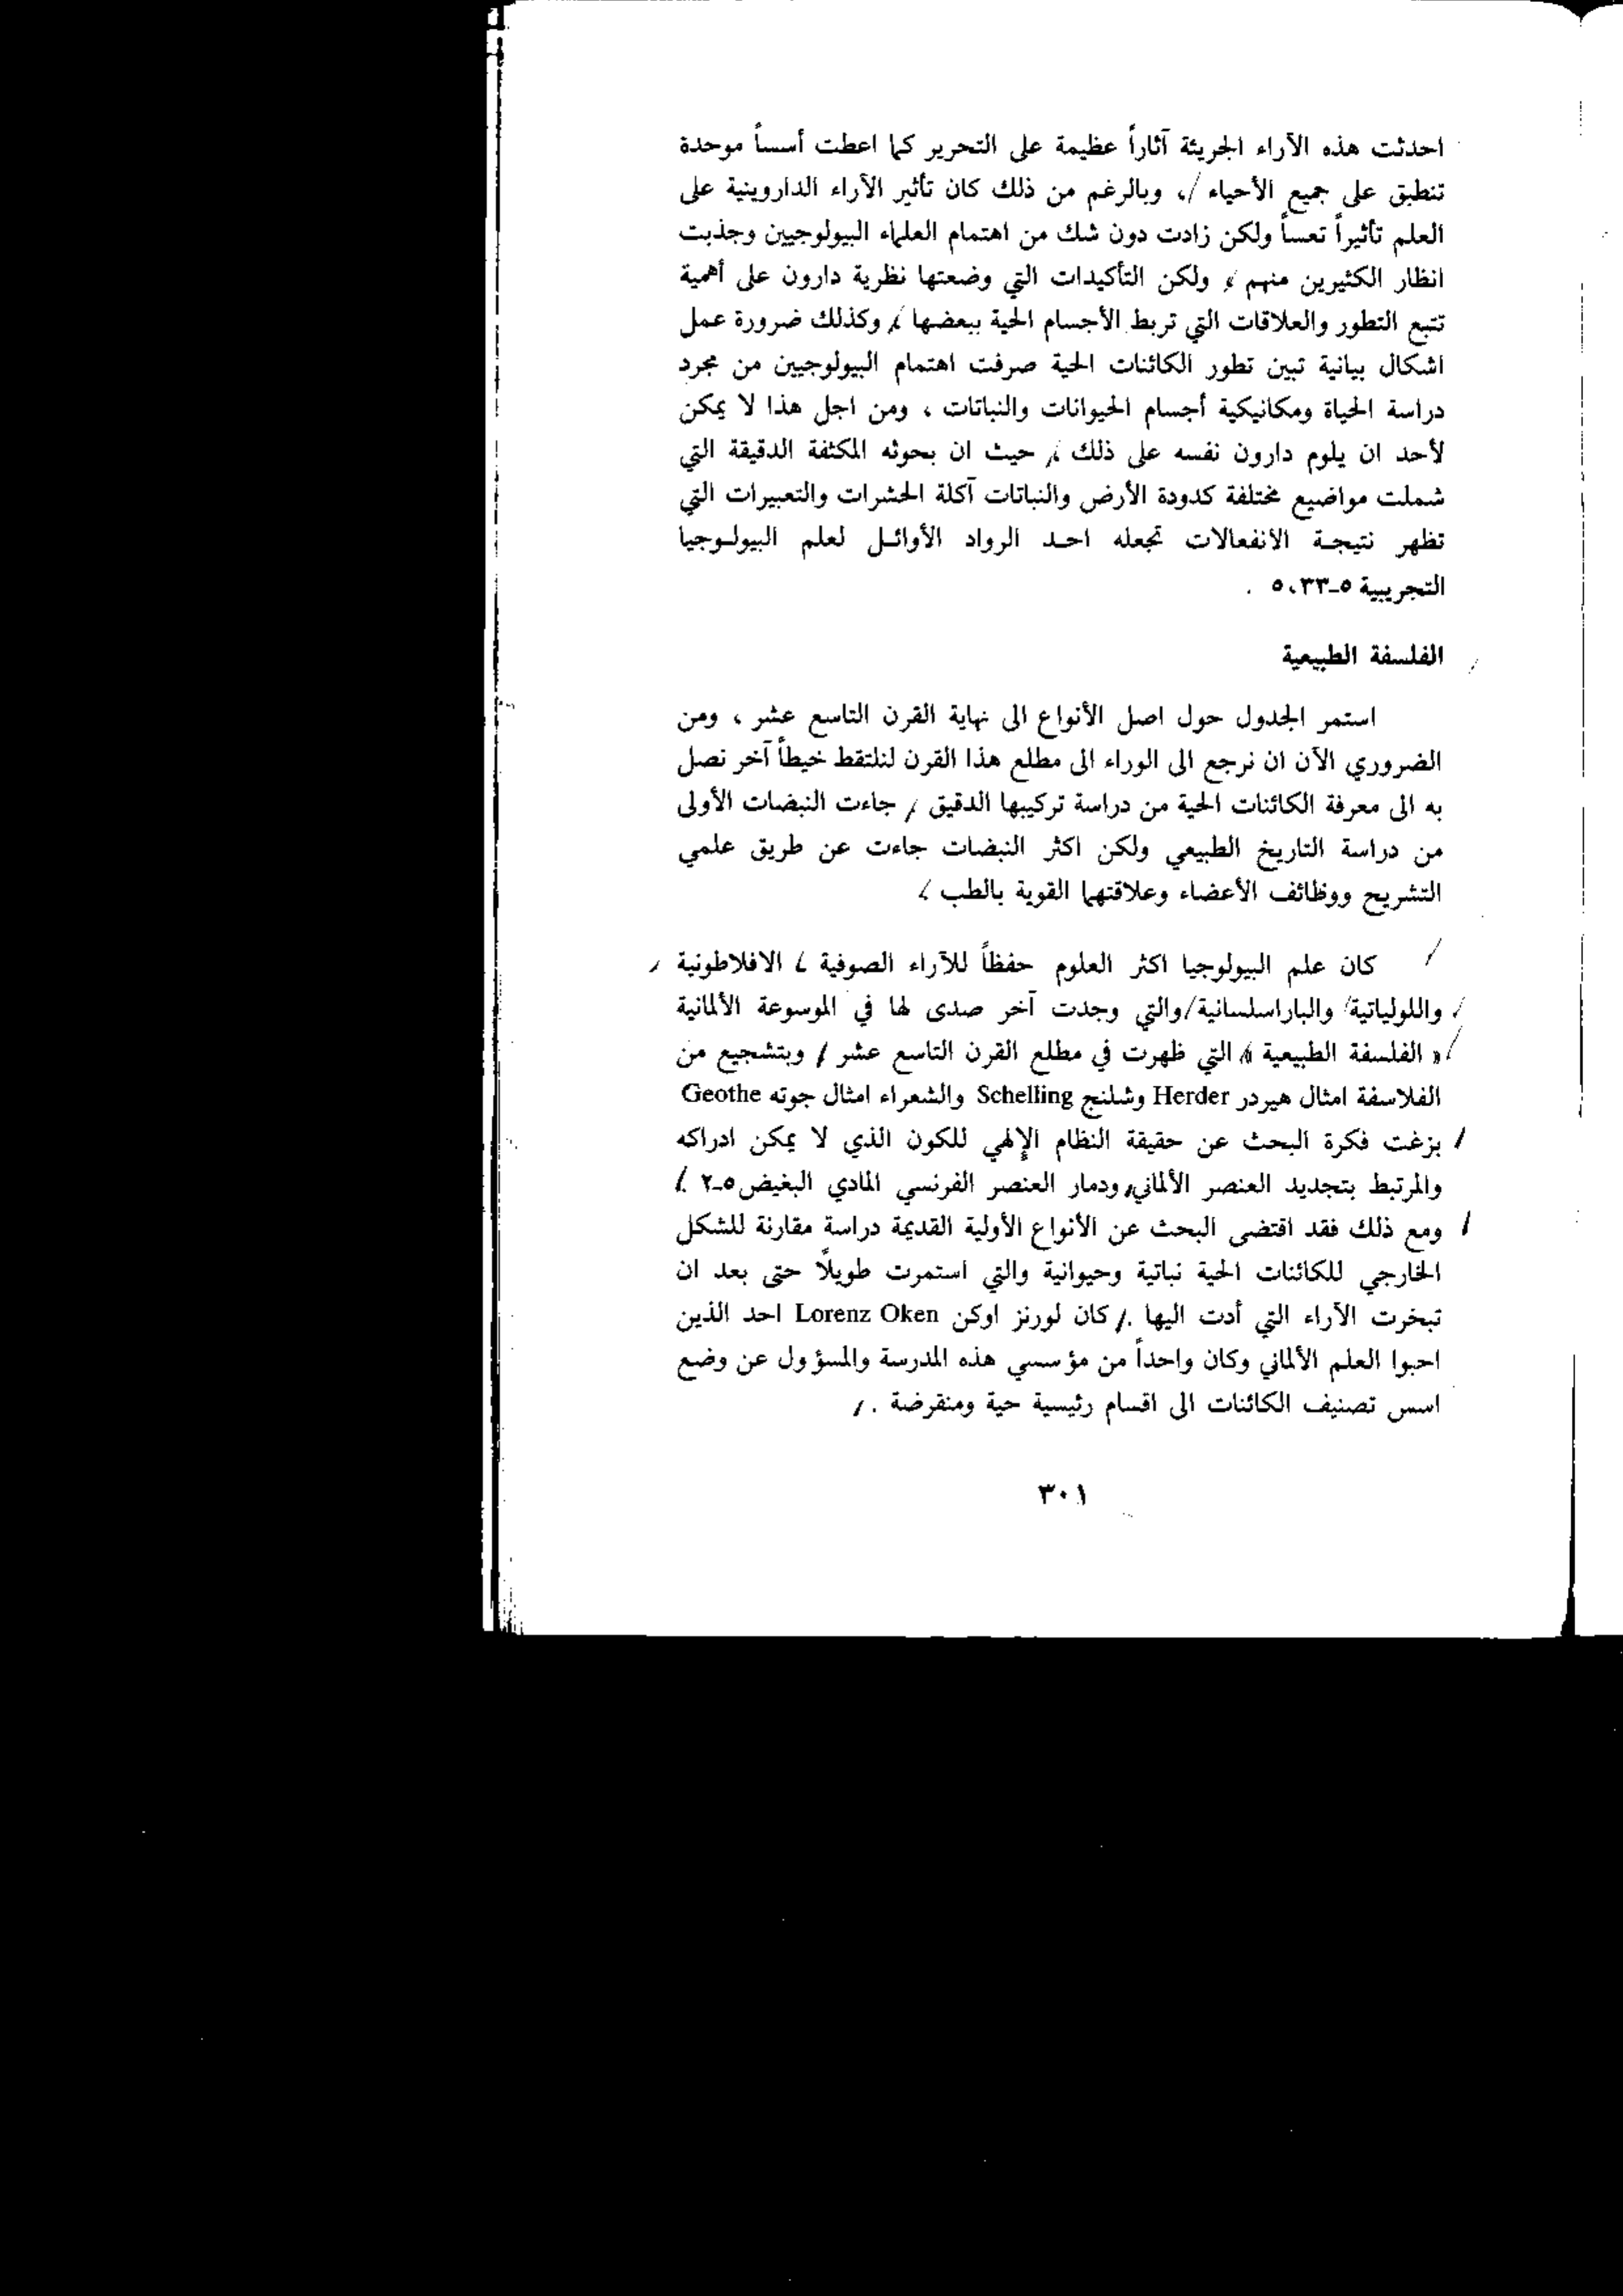 احدثت هذه الآراء الجريئة آثاراً عظيمة على التحرير كما اعطت أسساً موحدة
تنطبق على جميع الأحياء ، وبالرغم من ذلك كان تأثير الآراء الداروينية على
العلم تأثيراً تعساً ولكن زادت دون شك من اهتمام العلماء البيولوجيين وجذبت
انظار الكثيرين منهم ، ولكن التأكيدات التي وضعتها نظرية دارون على أهمية
تتبع التطور والعلاقات التي تربط الأجسام الحية ببعضها ، وكذلك ضرورة عمل
اشكال بيانية تبين تطور الكائنات الحية صرفت اهتمام البيولوجيين من مجرد
دراسة الحياة ومكانيكية أجسام الحيوانات والنباتات ، ومن اجل هذا لا يمكن
لأحد ان يلوم دارون نفسه على ذلك ، حيث ان بحوثه المكثفة الدقيقة التي
شملت مواضيع مختلفة كدودة الأرض والنباتات آكلة الحشرات والتعبيرات التي
تظهر نتيجة الانفعالات تجعله احد الرواد الأوائل لعلم البيولوجيا
التجريبية ٥-٥،٣٣ .
الفلسفة الطبيعية
استمر الجدول حول اصل الأنواع الى نهاية القرن التاسع عشر ، ومن
الضروري الآن ان نرجع الى الوراء الى مطلع هذا القرن لنلتقط خيطاً آخر نصل
به الى معرفة الكائنات الحية من دراسة تركيبها الدقيق ، جاءت النبضات الأولى
من دراسة التاريخ الطبيعي ولكن اكثر النبضات جاءت عن طريق علمي
التشريح ووظائف الأعضاء وعلاقتهما القوية بالطب .
كان علم البيولوجيا اكثر العلوم حفظاً للآراء الصوفية ، الافلاطونية
واللولياتية والباراسلسانية والتي وجدت آخر صدى لها في الموسوعة الألمانية
« الفلسفة الطبيعية » التي ظهرت في مطلع القرن التاسع عشر ، وبتشجيع من
الفلاسفة امثال هيردر Herder وشلنج Schelling والشعراء امثال جوته Geothe
بزغت فكرة البحث عن حقيقة النظام الإلهي للكون الذي لا يمكن ادراكه
والمرتبط بتجديد العنصر الألماني، ودمار العنصر الفرنسي المادي البغيض ٥-٢ .
ومع ذلك فقد اقتضى البحث عن الأنواع الأولية القديمة دراسة مقارنة للشكل
الخارجي للكائنات الحية نباتية وحيوانية والتي استمرت طويلاً حتى بعد ان
تبخرت الآراء التي أدت اليها . كان لورنز اوكن Lorenz Oken احد الذين
احبوا العلم الألماني وكان واحداً من مؤسسي هذه المدرسة والمسؤول عن وضع
اسس تصنيف الكائنات الى اقسام رئيسية حية ومنقرضة .
٣٠١